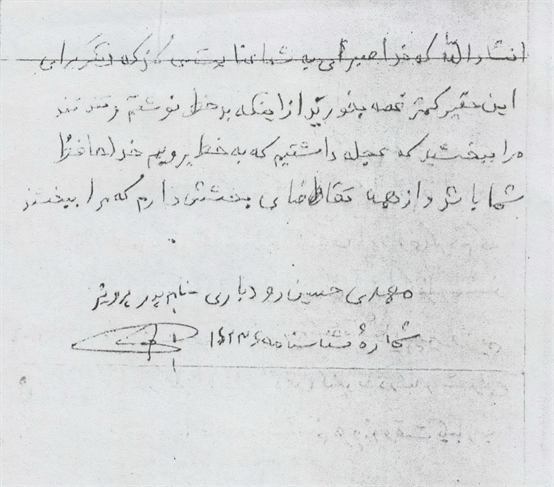 انشاءالله که خدا صبرائی به شما عنایت می کند که دیگر برای
این حقیر کمتر غصه بخورید از اینکه بد خط نوشتم
مرا ببخشید که عجله داشتیم که به خط برویم خدا حافظ
شما باشد و از همه تقاضای بخشش دارم که مرا ببخشند
مهدی حسین رودباری نام پدر پرویز
شمارهٔ شناسنامه